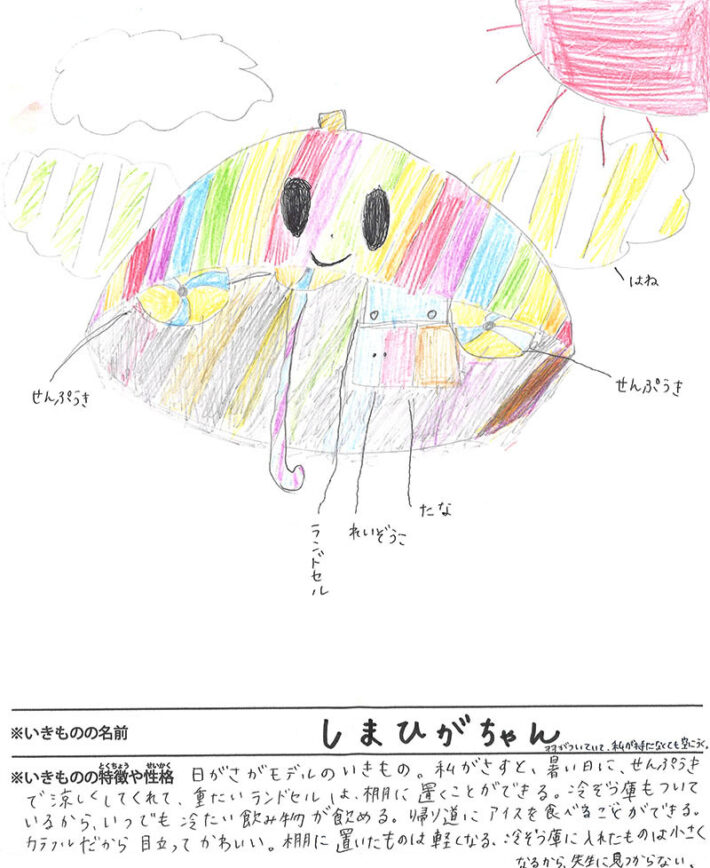 はね
せんぷうき
せんぷうき
たな
れいぞうこ
ランドセル
※いきものの名前
しまひがちゃん
羽がついていて、私が持たなくても空にうく。
※いきものの特徴や性格
とくちょう せいかく
日がさがモデルのいきもの。私がさすと、暑い日に、せんぷうき
で涼しくしてくれて、重たいランドセルは、棚に置くことができる。冷ぞう庫もついて
いるから、いつでも冷たい飲み物が飲める。帰り道にアイスを食べることができる。
カラフルだから目立ってかわいい。棚に置いたものは軽くなる、冷ぞう庫に入れたものは小さく
なるから、先生に見つからない。